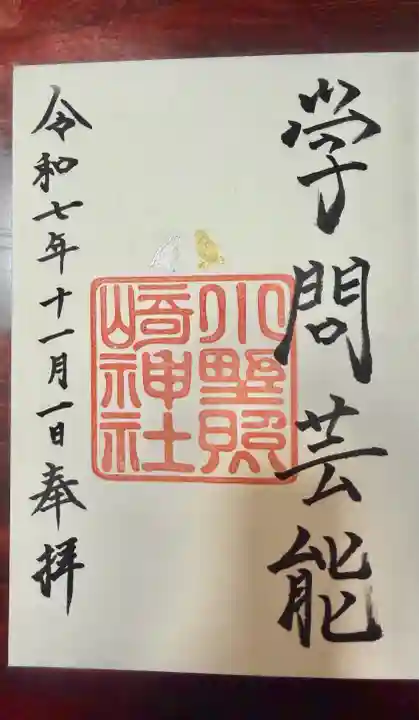 学問芸能
小野照
崎神社
令和七年十一月一日奉拝